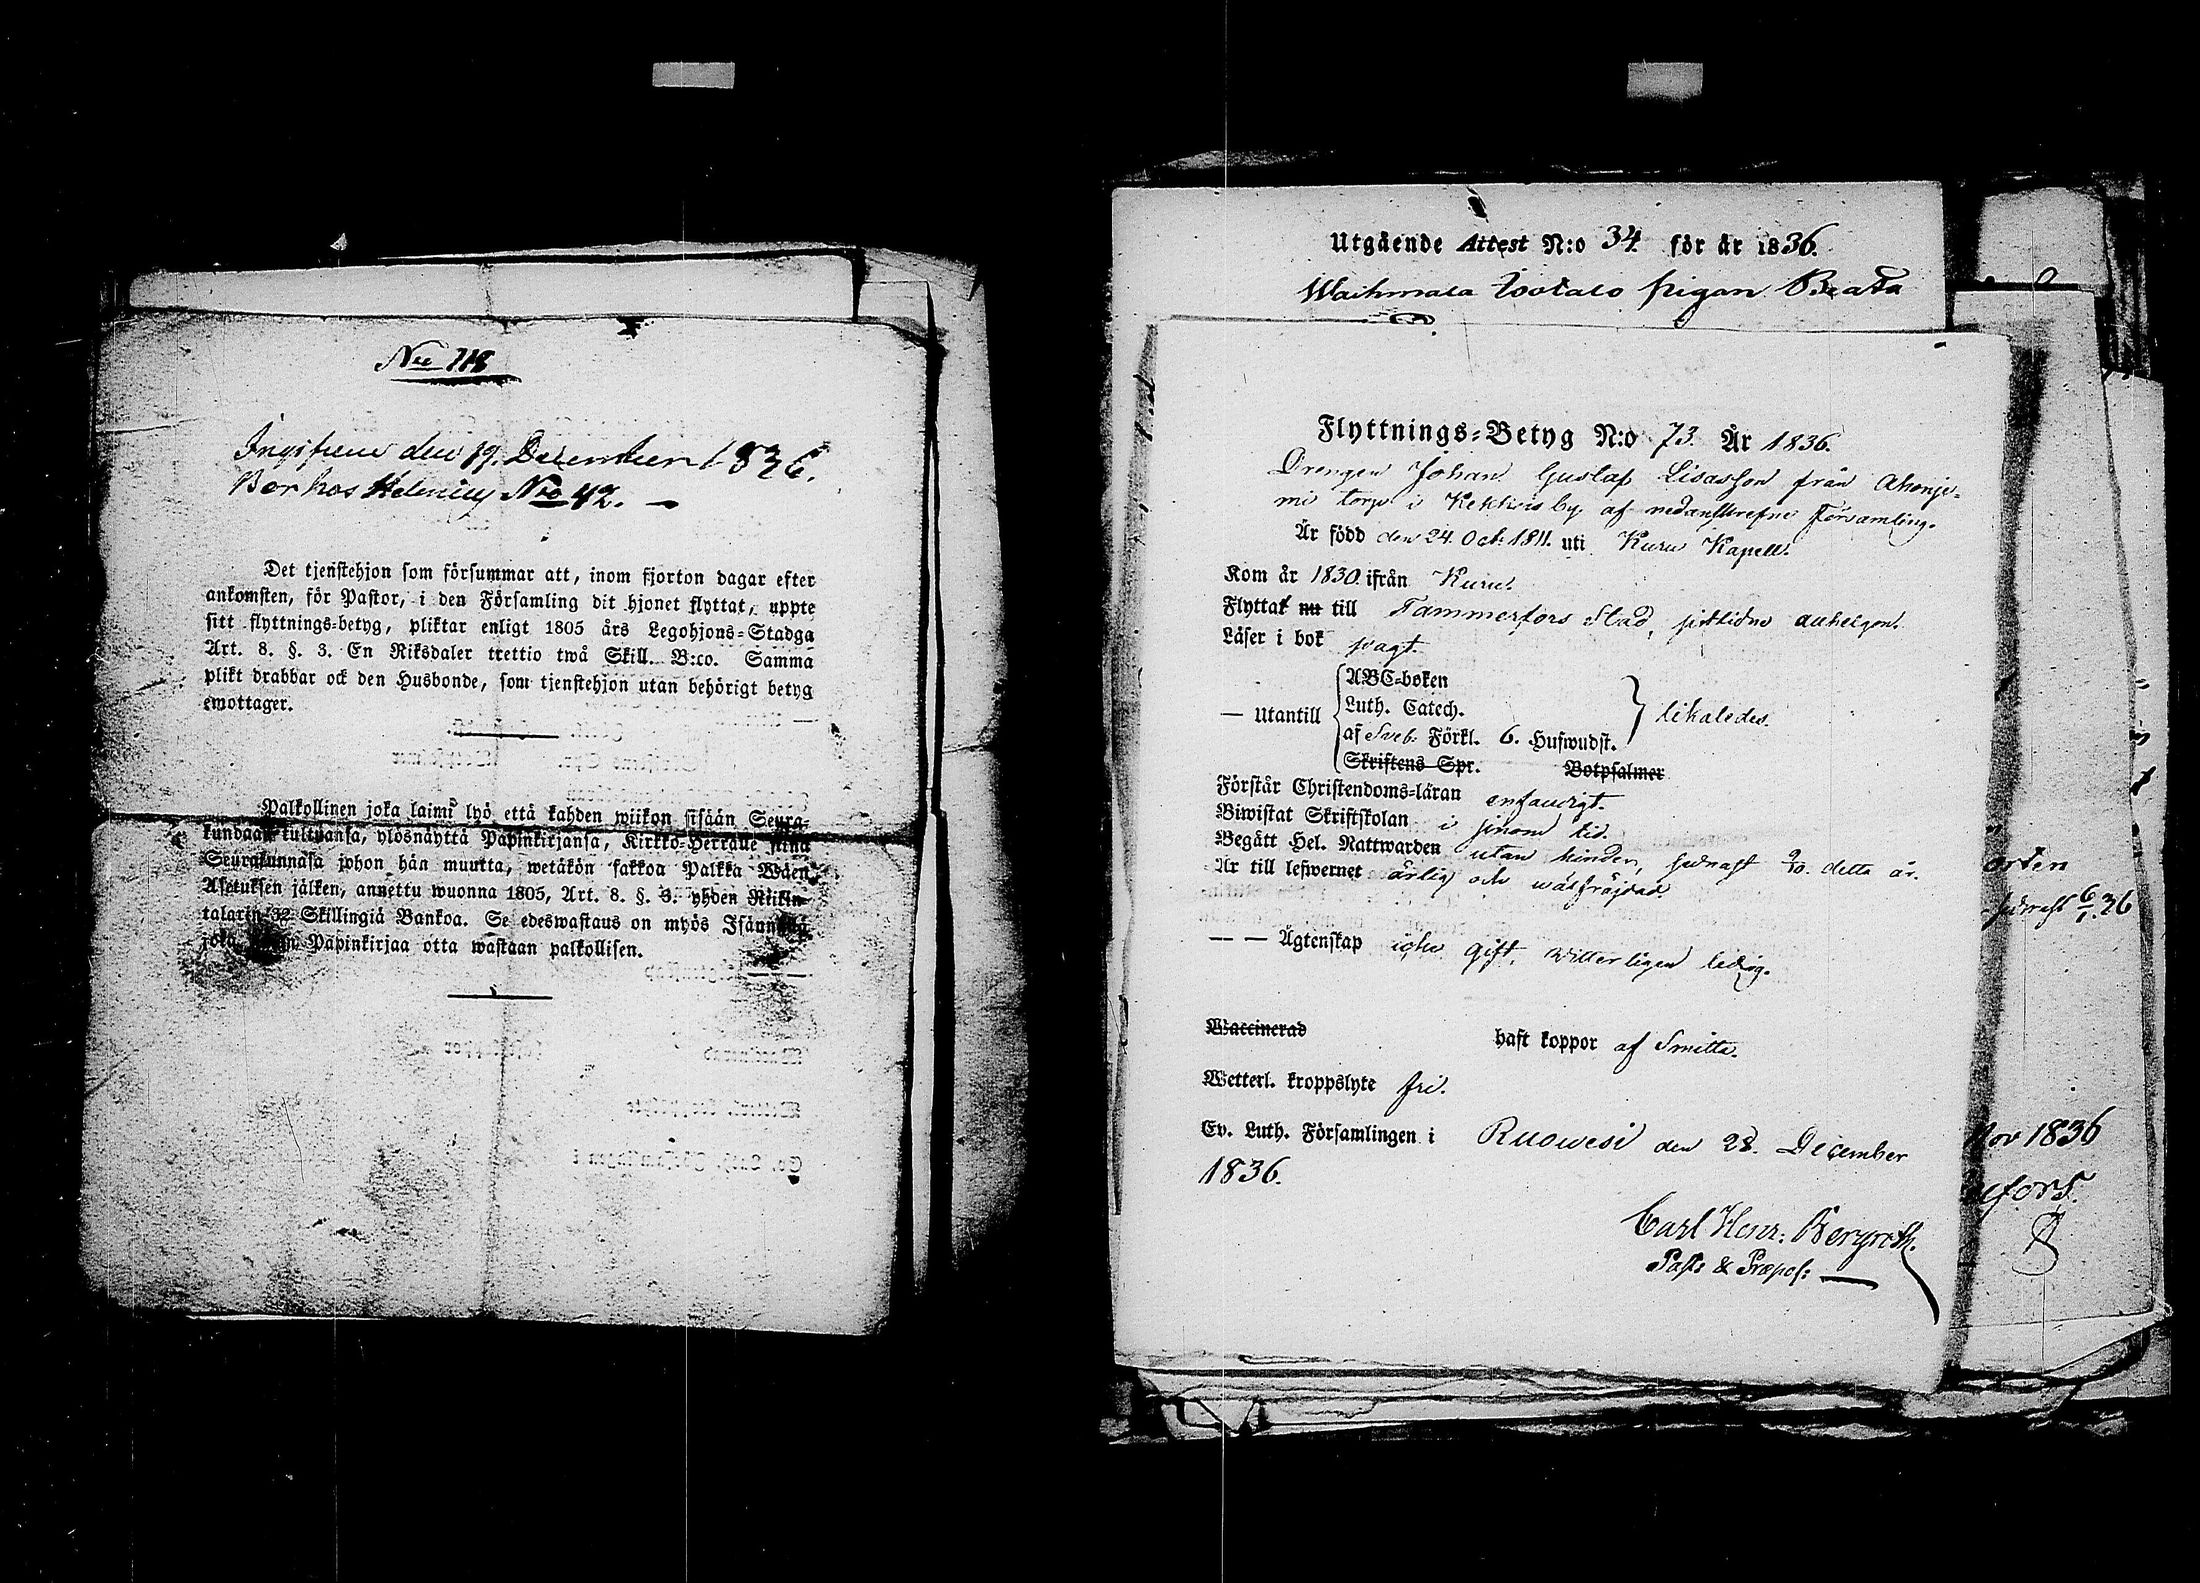 No 118
Ingifven den 19. December 1836.
Borhos Helenius No 42. —
Det tjenstehjon som försummar att, inom fjorton dagar efter
ankomsten, för Pastor, i den Församling dit hjonet flyttat, uppte
sitt flyttnings-betyg, pliktar enligt 1805 års Legohjons-Stadga
Art. 8. §. 3. En Riksdaler trettio twå Skill. B:co. Samma
plikt drabbar ock den Husbonde, som tjenstehjon utan behörigt betyg
emottager.
Palkollinen joka laimi lyö että kahden wiikon sisään Seura-
kundaan tultuansa, ylösnäyttä Papinkirjansa, Kirkko-Herralle siinä
Seurakunnasa johon hän muutta, wetäkön sakkoa Palkka Wäen
Asetuksen jälken, annettu wuonna 1805, Art. 8. §. 3. yhden Riikin-
talarin 32 Skillingiä Bankoa. Se edeswastaus on myös Isännällä
joka Papinkirjaa otta wastaan palkollisen.
Utgående Attest N:o 34 för år 1836.
pigan Beata
Flyttnings-Betyg N:o 73. År 1836.
Drengen Johan Gustaf Lisasson från Ahonje-
mi torp i Kekkois by af nedanskrefne Församling.
Är född den 24. Oct. 1811. uti Kuru Kapell.
Kom år 1830. ifrån Kuru.
Flyttat nu till Tammerfors Stad,
Läser i bok svagt.
— Utantill
ABC-boken
Luth. Catech.
af Sveb. Förkl. 6. Hufwudst.
likaledes.
Skriftens Spr. Botpsalmer
Förstår Christendoms-läran enfaldigt.
Biwistat Skriftskolan i sinom tid.
Begått Hel. Nattwarden utan hinder, sednast 9/10. detta år.
Är till lefwernet ärlig och wälfrägdad.
— — Ägtenskap icke gift, witterligen ledig.
Waccinerad haft koppor af Smitta.
Wetterl. kroppslyte fri.
Ev. Luth. Församlingen i Ruowesi den 28. December
1836.
Carl Henr: Bergroth.
Past: & Præpos:
sednast 6/1. 36
Nov 1836